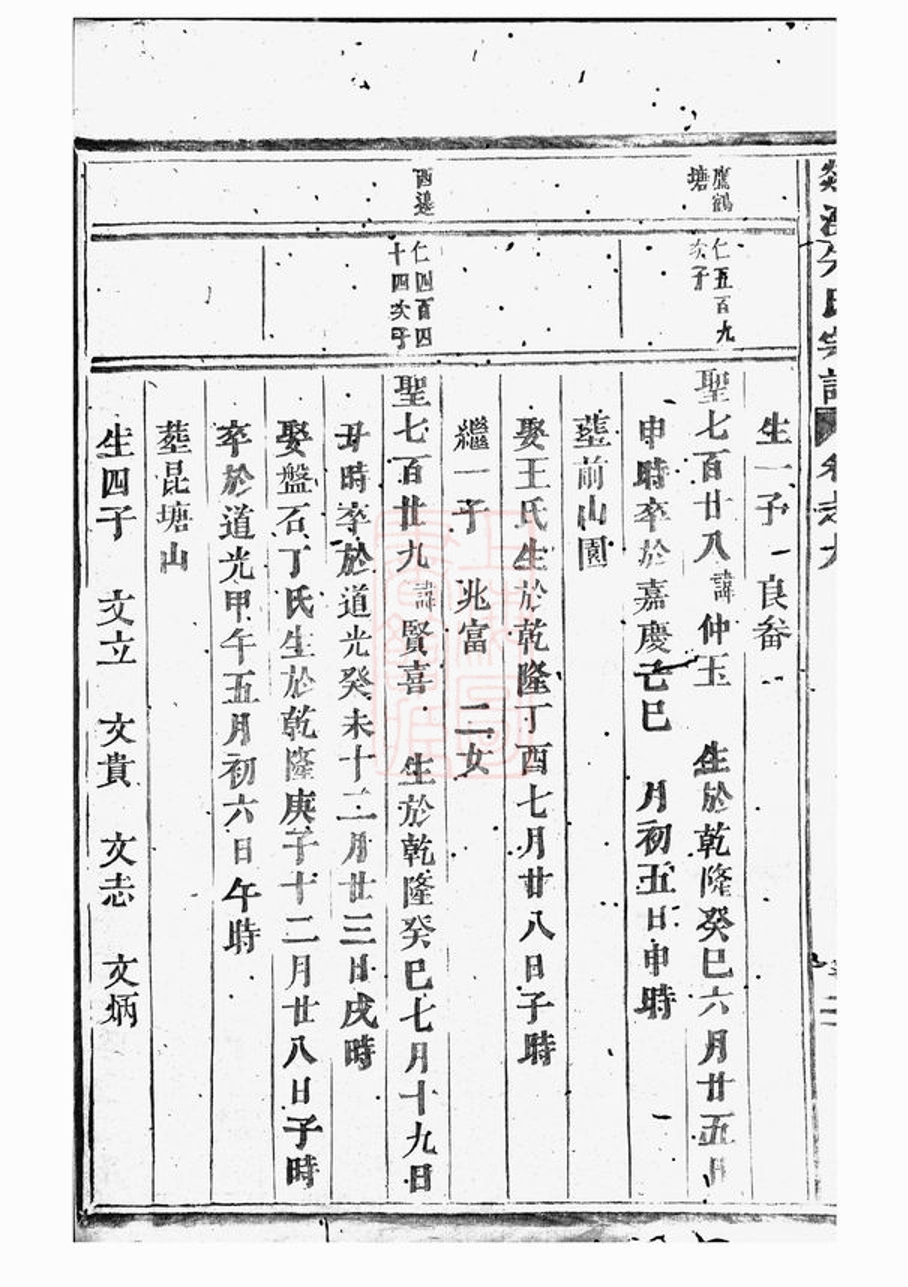 氏宗譜 卷之九
生一子 良畚
鷹鶴塘
仁五百九次子
聖七百廿八 諱仲玉 生於乾隆癸巳六月廿五日
申時卒於嘉慶己巳 月初五日申時
塟前山園
娶王氏生於乾隆丁酉七月廿八日子時
繼一子 兆富 二女
西邊
仁四百四十四次子
聖七百廿九 諱賢喜 生於乾隆癸巳七月十九日
丑時卒於道光癸未十二月廿三日戌時
娶盤石丁氏生於乾隆庚子十二月廿八日子時
卒於道光甲午五月初六日午時
塟昆塘山
生四子 文立 文貴 文志 文炳